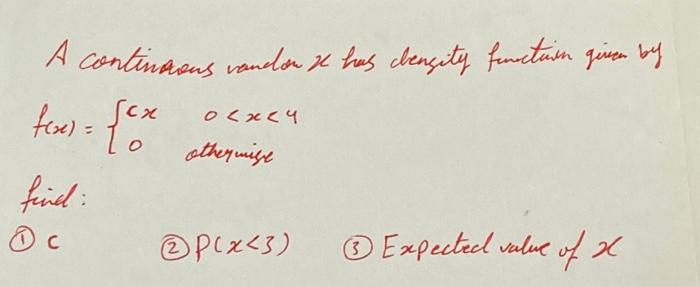 A continuous random x has density function given by
f(x) = { cx 0 < x < 4
0 otherwise
find:
① c ② P(x<3) ③ Expected value of x